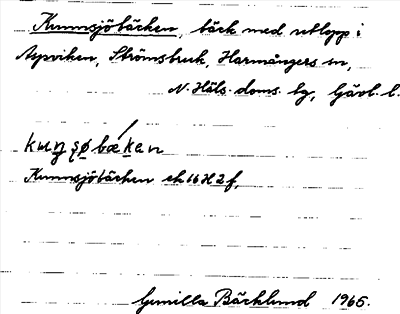 Kunnsjöbäcken, bäck med utlopp i
Aspviken, Strömsbruk, Harmångers sn,
N. Häls. doms. lg, Gävl. l.
kuŋʂøbækan
Kunnsjöbäcken ek 16 H 2 f,
Gunilla Bäcklund 1965.